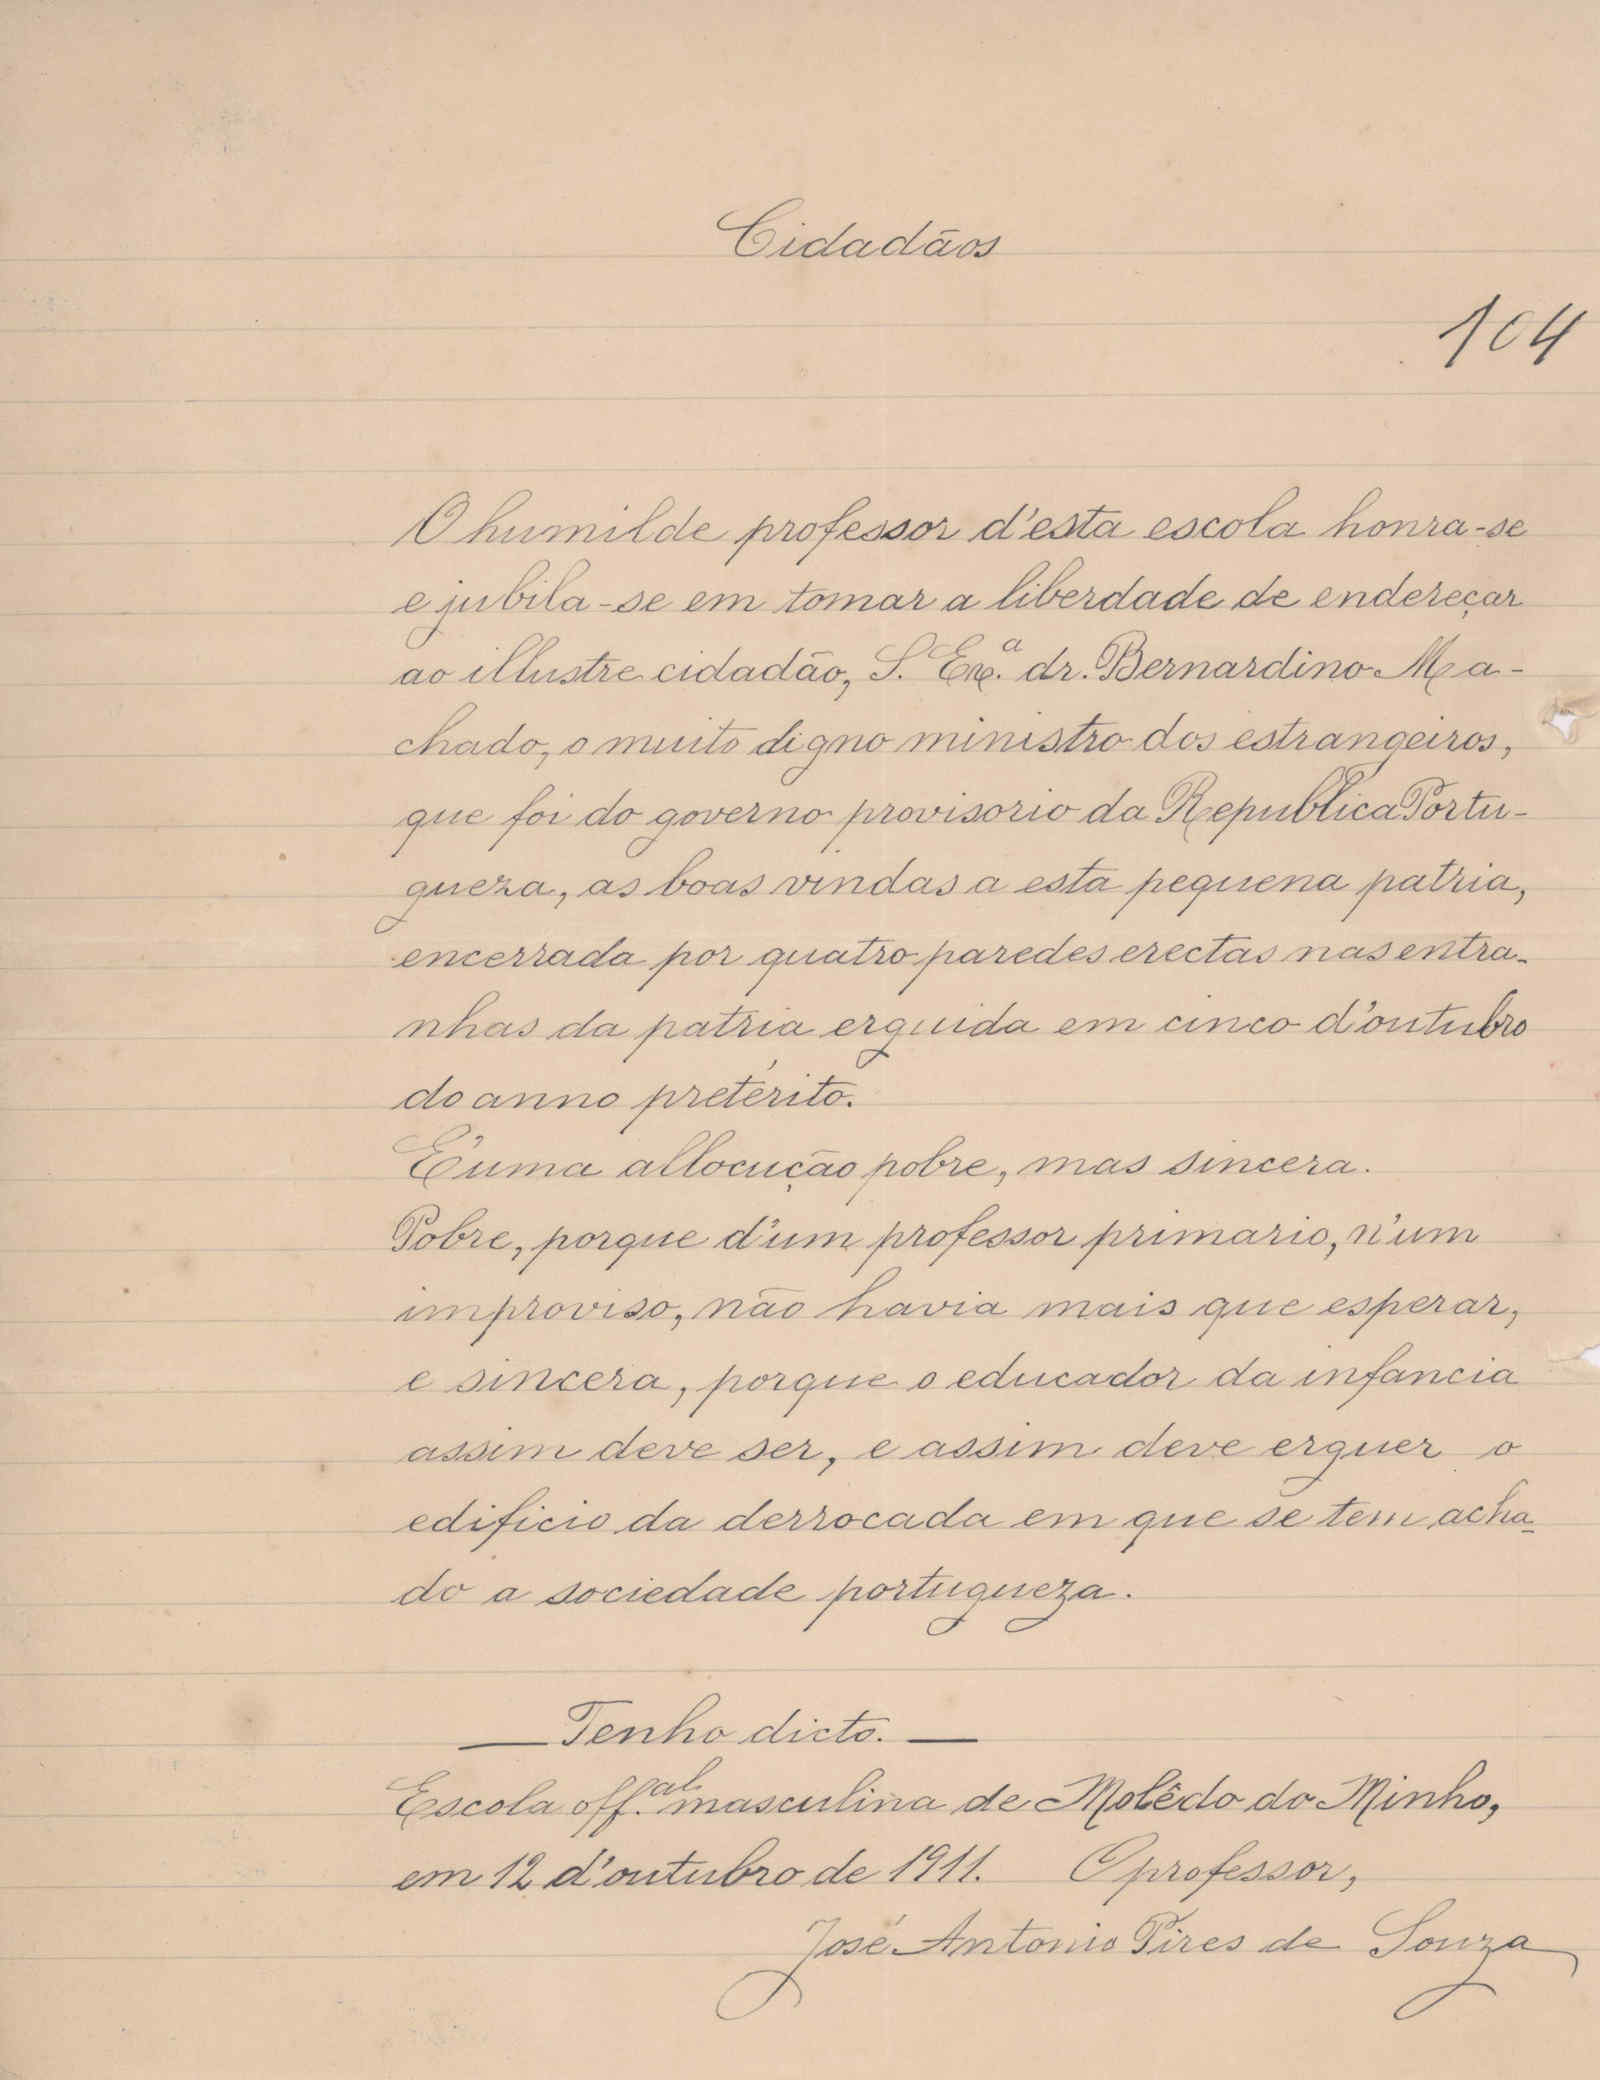 Cidadãos
104
O humilde professor d'esta escola honra-se
e jubila-se em tomar a liberdade de endereçar
ao illustre cidadão, S. Ex.ª dr. Bernardino Ma-
chado, o muito digno ministro dos estrangeiros,
que foi do governo provisorio da Republica Portu-
gueza, as boas vindas a esta pequena patria,
encerrada por quatro paredes erectas nas entra-
nhas da patria erguida em cinco d'outubro
do anno pretérito.
É uma allocução pobre, mas sincera.
Pobre, porque d'um professor primario, n'um
improviso, não havia mais que esperar,
e sincera, porque o educador da infancia
assim deve ser, e assim deve erguer o
edificio da derrocada em que se tem acha-
do a sociedade portugueza.
— Tenho dicto. —
Escola off.al masculina de Molêdo do Minho,
em 12 d'outubro de 1911. O professor,
José Antonio Pires de Souza